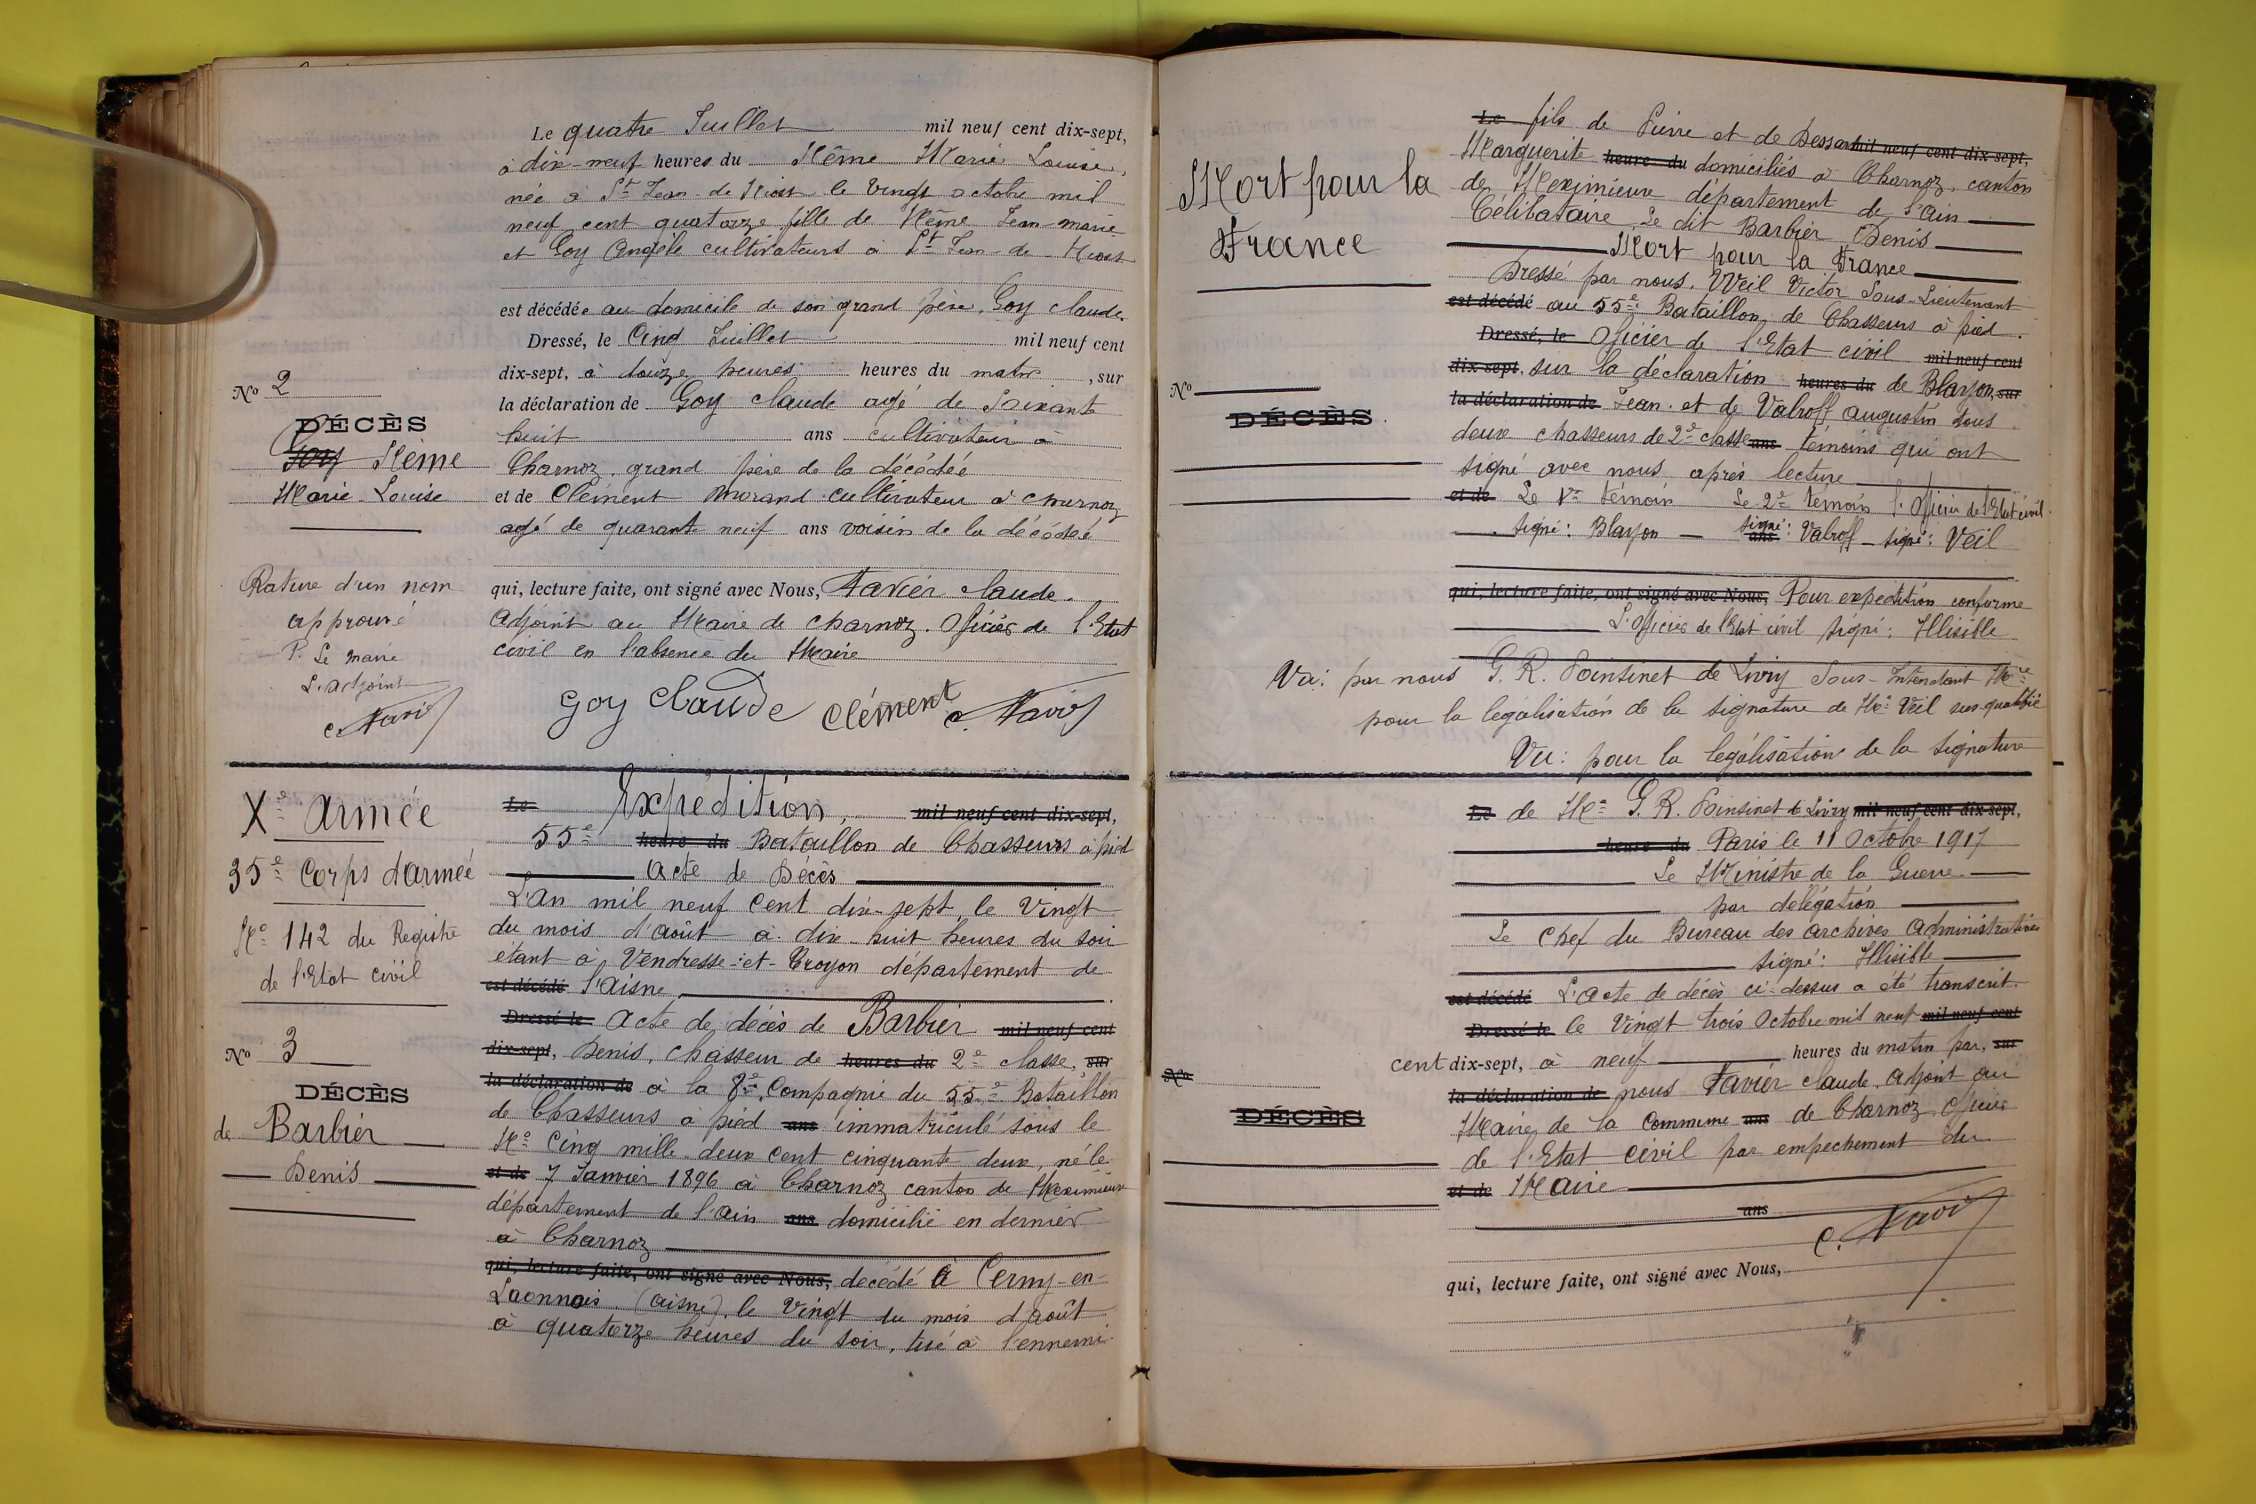 Le quatre Juillet mil neuf cent dix-sept,
à dix-neuf heures du Même Marie Louise,
née à St Jean-de-Niost le vingt octobre mil
neuf cent quatorze fille de Même Jean-marie
et Goy Angèle cultivateurs à St Jean-de-Niost
est décédée au domicile de son grand père, Goy claude.
Dressé, le Cinq Juillet mil neuf cent
dix-sept, à douze heures heures du matin, sur
la déclaration de Goy claude agé de Soixante
huit ans cultivateur à
Charnoz, grand père de la décédée
et de Clément Morand cultivateur à charnoz
agé de quarante neuf ans voisin de la décédée
qui, lecture faite, ont signé avec Nous, Favier claude.
Adjoint au Maire de charnoz. Officier de l'Etat
civil en l'absence du Maire
Goy Claude Clément C. Favier
No 2
DÉCÈS
Goy Même
Marie Louise
Rature d'un nom
approuvé
P. Le maire
L'adjoint
C. Favier
Xe Armée
35e Corps d'armée
No 142 du Registre
de l'Etat civil
No 3
DÉCÈS
de Barbier
Denis
Le Expédition, mil neuf cent dix-sept,
55e heure du Bataillon de Chasseurs à pied
Acte de Décès
L'an mil neuf cent dix-sept, le Vingt
du mois d'août à dix-huit heures du soir
étant à Vendresse-et-Troyon département de
est décédé l'Aisne
Dressé le Acte de décès de Barbier mil neuf cent
dix-sept, Denis, chasseur de heures du 2e classe, sur
la déclaration de à la 8e Compagnie du 55e Bataillon
de Chasseurs à pied ans immatriculé sous le
No cinq mille deux cent cinquante deux, né le
et de 7 Janvier 1896 à Charnoz canton de Meximieux
département de l'ain ans domicilié en dernier
à Charnoz
qui, lecture faite, ont signé avec Nous, décédé à Cerny-en-
Laonnois (aisne), le Vingt du mois d'août
à quatorze heures du soir, tué à l'ennemi
Mort pour la
France
No
DÉCÈS
Le fils de Pierre et de mil neuf cent dix-sept,
Marguerite heure du domiciliés à Charnoz, canton
de Meximieux département de l'Ain
Célibataire, Le dit Barbier Denis
Mort pour la France
Dressé par nous. Weil Victor Sous-Lieutenant
est décédé au 55e Bataillon de Chasseurs à pied.
Dressé, le Officier de l'Etat civil mil neuf cent
dix-sept, sur la déclaration heures du de Blayon, sur
la déclaration de Jean. et de Valroff Augustin tous
deux chasseurs de 2e classe ans témoins qui ont
signé avec nous après lecture
et de Le 1er témoin Le 2e témoin l'Officier de l'Etat civil.
Signé: Blayon signé: ans Valroff signé: Veil
qui, lecture faite, ont signé avec Nous, Pour expédition conforme
L'Officier de l'Etat civil signé: Illisible
Vu: par nous G. R. Poinsinet de Livry Sous-Intendant Mre
pour la légalisation de la signature de Mr Veil sus-qualifié
Vu: pour la légalisation de la signature
Le de Mr G. R. Poinsinet de Livry mil neuf cent dix-sept,
heure du Paris le 11 Octobre 1917
Le Ministre de la Guerre
par délégation
Le Chef du Bureau des archives Administratives
signé: Illisible
est décédé L'acte de décès ci-dessus a été transcrit
Dressé le le Vingt trois Octobre mil neuf mil neuf cent
cent dix-sept, à neuf heures du matin par, sur
la déclaration de nous Favier claude, Adjoint au
Maire de la Commune ans de Charnoz Officier
de l'Etat civil par empechement du
et de Maire
ans
C. Favier
qui, lecture faite, ont signé avec Nous,
No
DÉCÈS